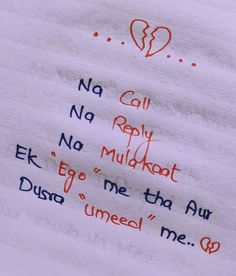 Na Call
Na Reply
Na Mulakaat
Ek "Ego" me tha Aur
Dusra "umeed" me..